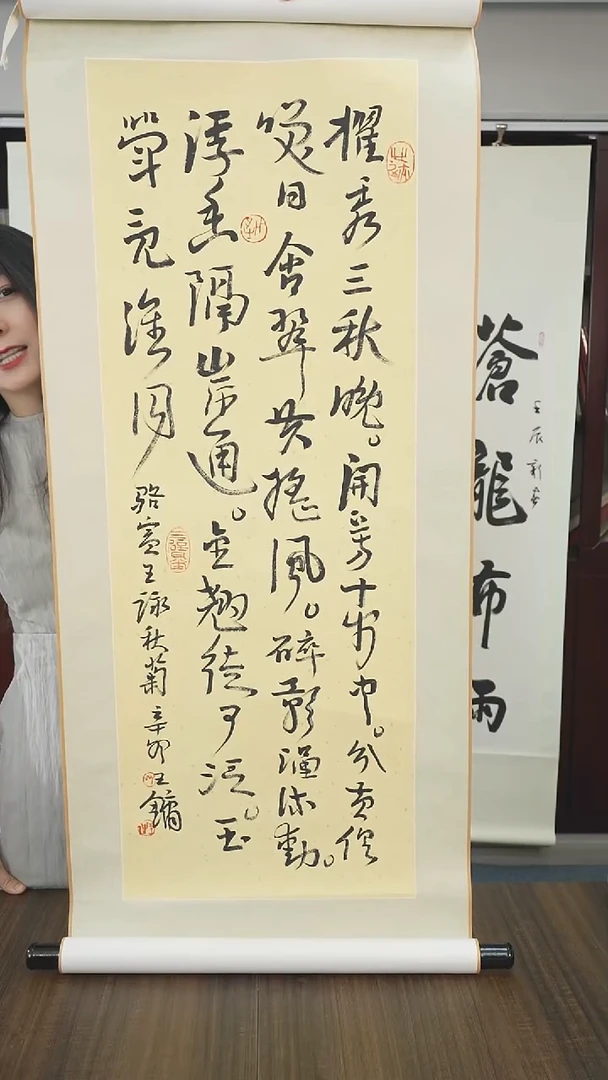 擢秀三秋晚。開芳十步中。分黄俱
咲日含翠共搖風。碎影涵流動。
浮香隔岸通。金翘徒可泛。玉
斝竟誰同
駱賓王詠秋菊 辛卯 王鏞
蒼龍布雨
壬辰新春